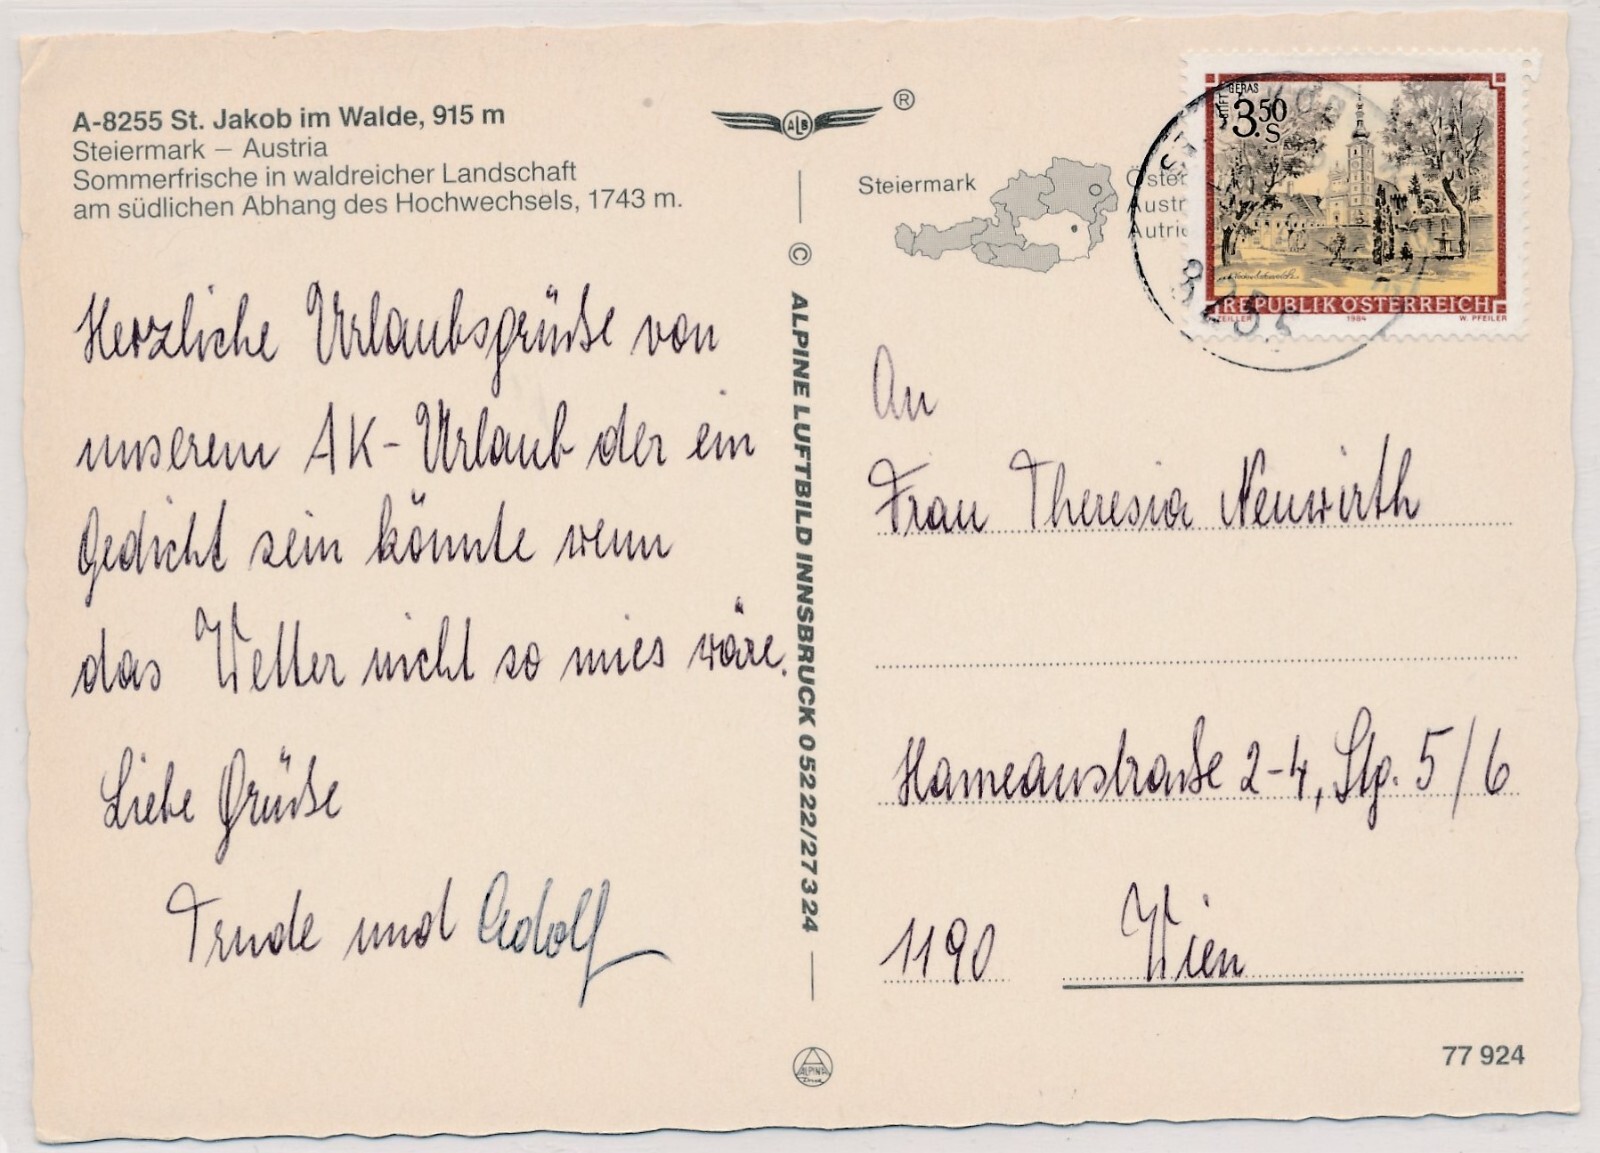 A-8255 St. Jakob im Walde, 915 m
Steiermark – Austria
Sommerfrische in waldreicher Landschaft
am südlichen Abhang des Hochwechsels, 1743 m.
Herzliche Urlaubsgrüße von
unserem AK-Urlaub der ein
Gedicht sein könnte wenn
das Wetter nicht so mies wäre.
Liebe Grüße
Trude und Adolf
ALB
®
© ALPINE LUFTBILD INNSBRUCK 0 52 22/2 73 24
ALPINA
Steiermark
Öster
Austr
Autric
STIFT GERAS
3.50
S
REPUBLIK ÖSTERREICH
ZEILLER 1984 W. PFEILER
8255
An
Frau Theresia Neuwirth
Hameaustraße 2-4, Stg. 5/6
1190 Wien
77 924